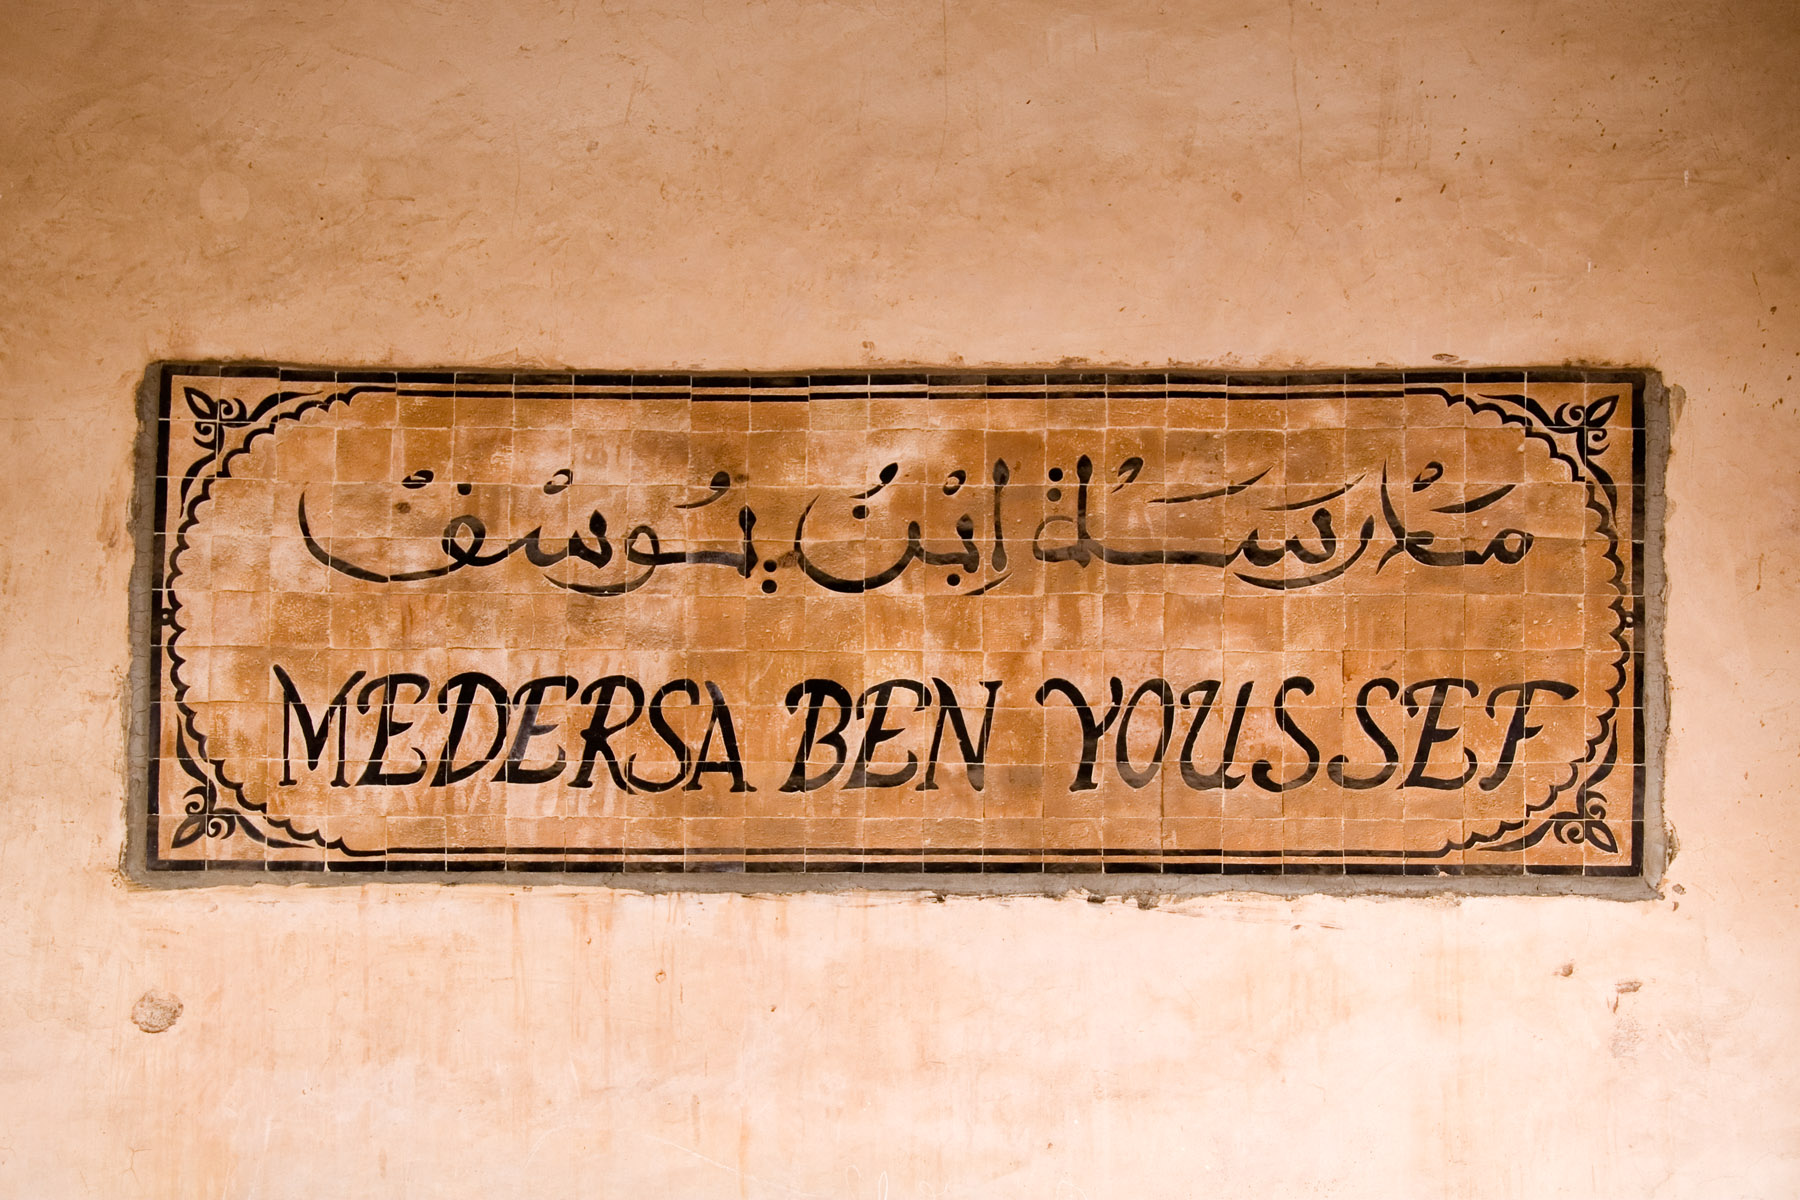 مَدْرَسَةُ ابْنُ يُوسُفْ
MEDERSA BEN YOUSSEF